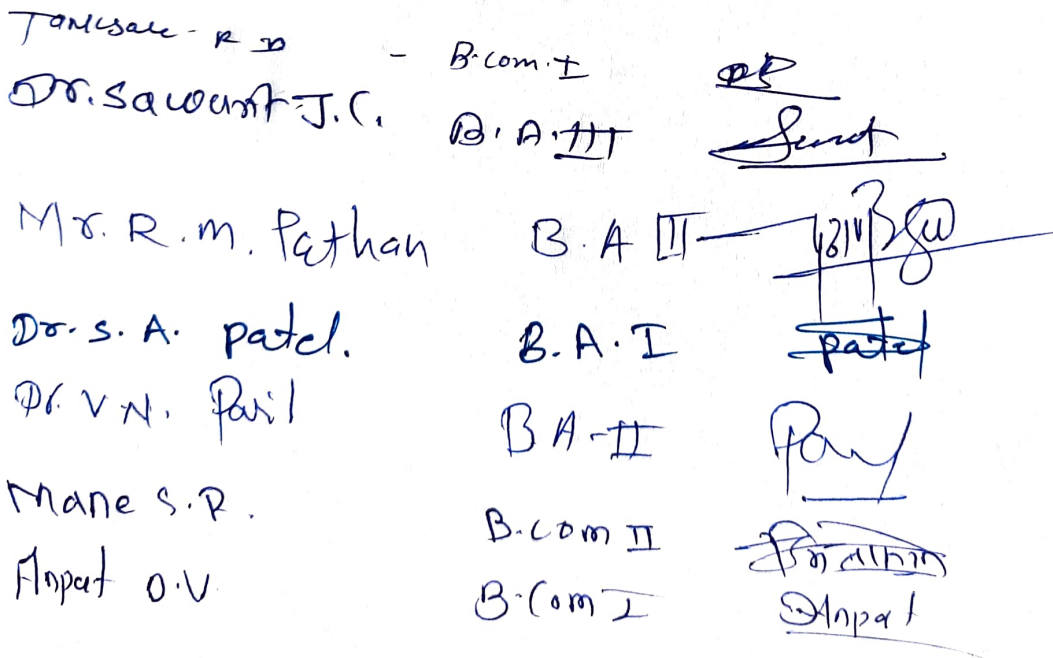 Tanksale - R D - B.com.I
Dr. Sawant J.C. B.A.III Sawant
Mr. R.m. Pathan B.A III
Dr. S. A. patel. B.A.I patel
Dr. V N. Patil BA-II
Mane S.R. B.com II
Anpat O.V B.Com I Anpat